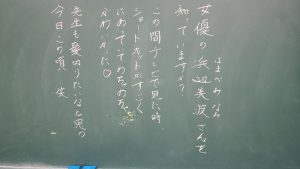 女優の浜辺美波さんを
はまべみなみ
知っていますか？
この間テレビで見た時、
ショートカットがすごく
にあっていてめちゃめちゃ
かわいかった♡
先生も髪切りたいなと思う
今日この頃 笑